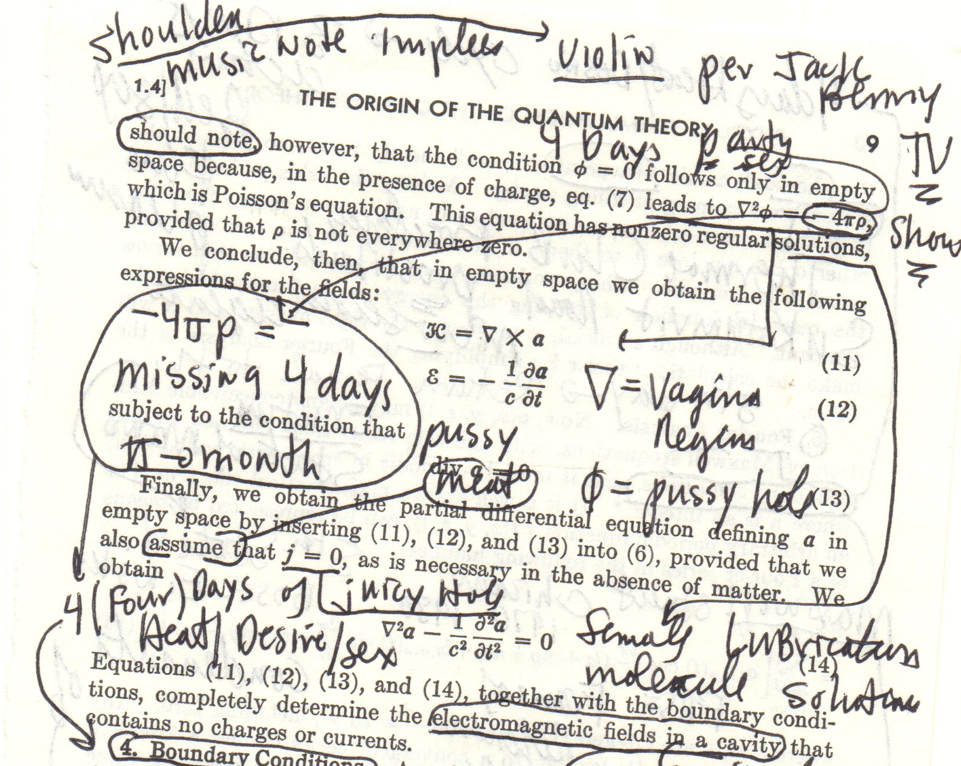 Shoulder
music note implees → violin per Jack Benny
1.4]
THE ORIGIN OF THE QUANTUM THEORY 9
4 Days party sex
TV
Show
should note, however, that the condition ϕ = 0 follows only in empty
space because, in the presence of charge, eq. (7) leads to ∇²ϕ = −4πρ,
which is Poisson's equation. This equation has nonzero regular solutions,
provided that ρ is not everywhere zero.
We conclude, then, that in empty space we obtain the following
expressions for the fields:
−4πρ =
ℋ = ∇ × a (11)
missing 4 days
ℰ = − 1/c ∂a/∂t (12)
∇ = Vagina
Region
subject to the condition that
π→month
pussy
meat
div a = 0 (13)
ϕ = pussy hole
Finally, we obtain the partial differential equation defining a in
empty space by inserting (11), (12), and (13) into (6), provided that we
also assume that j = 0, as is necessary in the absence of matter. We
obtain
4 (Four) Days of juicy Hole
Heat/Desire/sex
∇²a − 1/c² ∂²a/∂t² = 0 (14)
female Lubrication
molecule Solutions
Equations (11), (12), (13), and (14), together with the boundary condi-
tions, completely determine the electromagnetic fields in a cavity that
contains no charges or currents.
4. Boundary Conditions